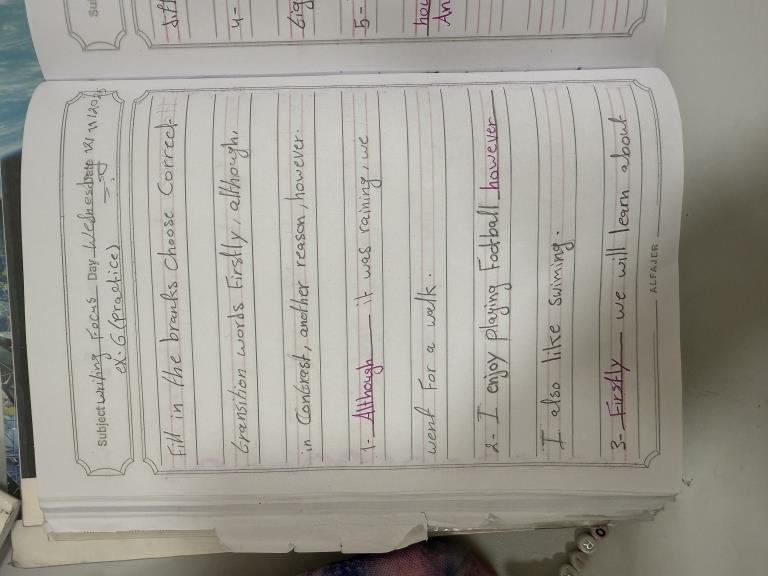 Subject Writing Focus Day Wednesday Date 12/11/2025
ex. 6 (practice)
Fill in the branks choose Correct
transition words Firstly, although,
in Contrast, another reason, however.
1- Although it was raining, we
went For a walk.
2- I enjoy playing Football however
I also like swiming.
3- Firstly we will learn about
ALFAJER
4-
5-